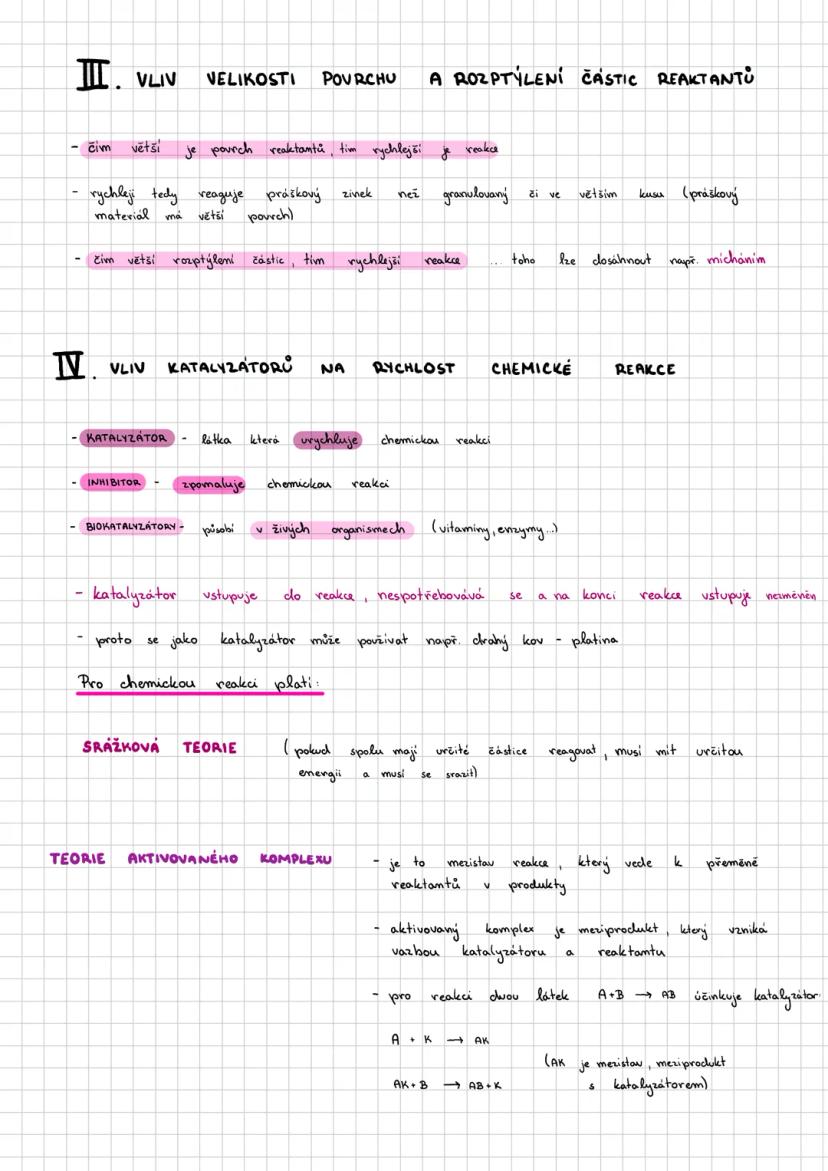 III. VLIV VELIKOSTI POVRCHU A ROZPTÝLENÍ ČÁSTIC REAKTANTŮ
- čím větší je povrch reaktantů, tím rychlejší je reakce
- rychleji tedy reaguje práškový zinek než granulovaný či ve větším kusu (práškový
materiál má větší povrch)
- čím větší rozptýlení částic, tím rychlejší reakce ... toho lze dosáhnout např. mícháním
IV. VLIV KATALYZÁTORŮ NA RYCHLOST CHEMICKÉ REAKCE
- KATALYZÁTOR - látka která urychluje chemickou reakci
- INHIBITOR - zpomaluje chemickou reakci
- BIOKATALYZÁTORY - působí v živých organismech (vitamíny, enzymy...)
- katalyzátor vstupuje do reakce, nespotřebovává se a na konci reakce vstupuje nezměněn
- proto se jako katalyzátor může používat např. drahý kov - platina
Pro chemickou reakci platí:
SRÁŽKOVÁ TEORIE (pokud spolu mají určité částice reagovat, musí mít určitou
energii a musí se srazit)
TEORIE AKTIVOVANÉHO KOMPLEXU - je to mezistav reakce, který vede k přeměně
reaktantů v produkty
- aktivovaný komplex je meziprodukt, který vzniká
vazbou katalyzátoru a reaktantu
- pro reakci dvou látek A+B → AB účinkuje katalyzátor:
A + K → AK
(AK je mezistav, meziprodukt
AK+B → AB+K s katalyzátorem)